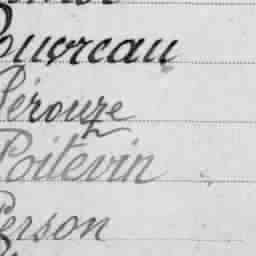 Pouvreau
Pérouze
Poitevin
Person